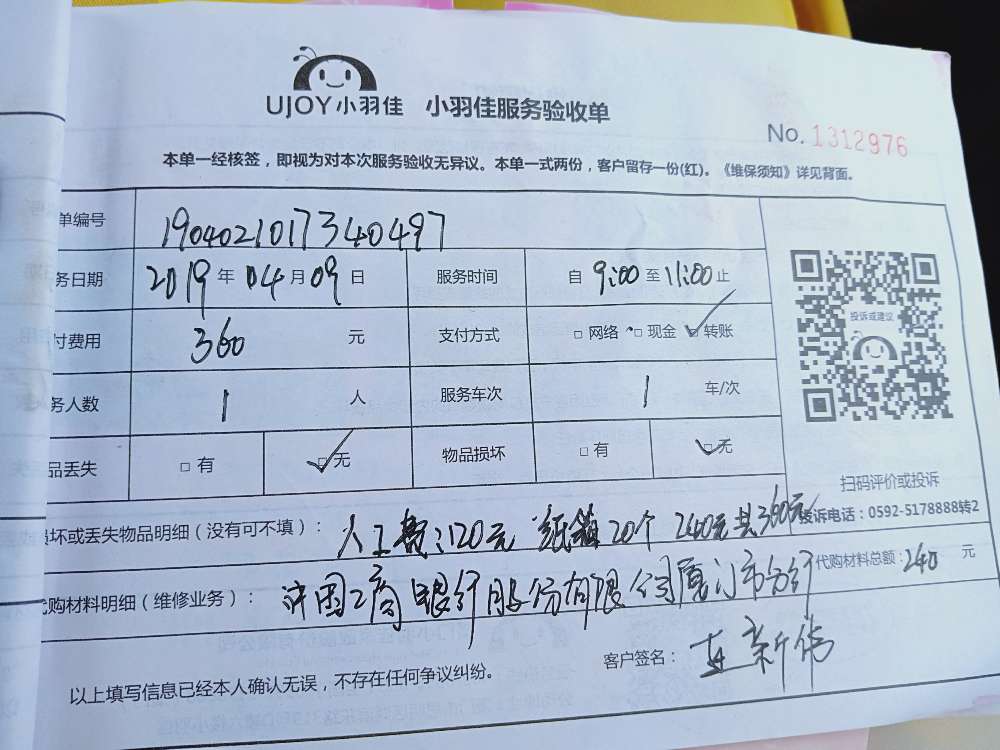 UJOY小羽佳 小羽佳服务验收单
No. 1312976
本单一经核签，即视为对本次服务验收无异议。本单一式两份，客户留存一份(红)。《维保须知》详见背面。
单编号 1904021017340497
务日期 2019 年 04 月 09 日 服务时间 自 9:00 至 11:00 止
付费用 360 元 支付方式 □ 网络 □ 现金 ☑ 转账
务人数 1 人 服务车次 1 车/次
品丢失 □ 有 ☑ 无 物品损坏 □ 有 ☑ 无
投诉或建议
扫码评价或投诉
投诉电话：0592-5178888转2
损坏或丢失物品明细（没有可不填）： 人工费：120元 纸箱20个 240元 共360元
代购材料明细（维修业务）： 中国工商银行股份有限公司厦门市分行 代购材料总额：240 元
以上填写信息已经本人确认无误，不存在任何争议纠纷。 客户签名：连新伟